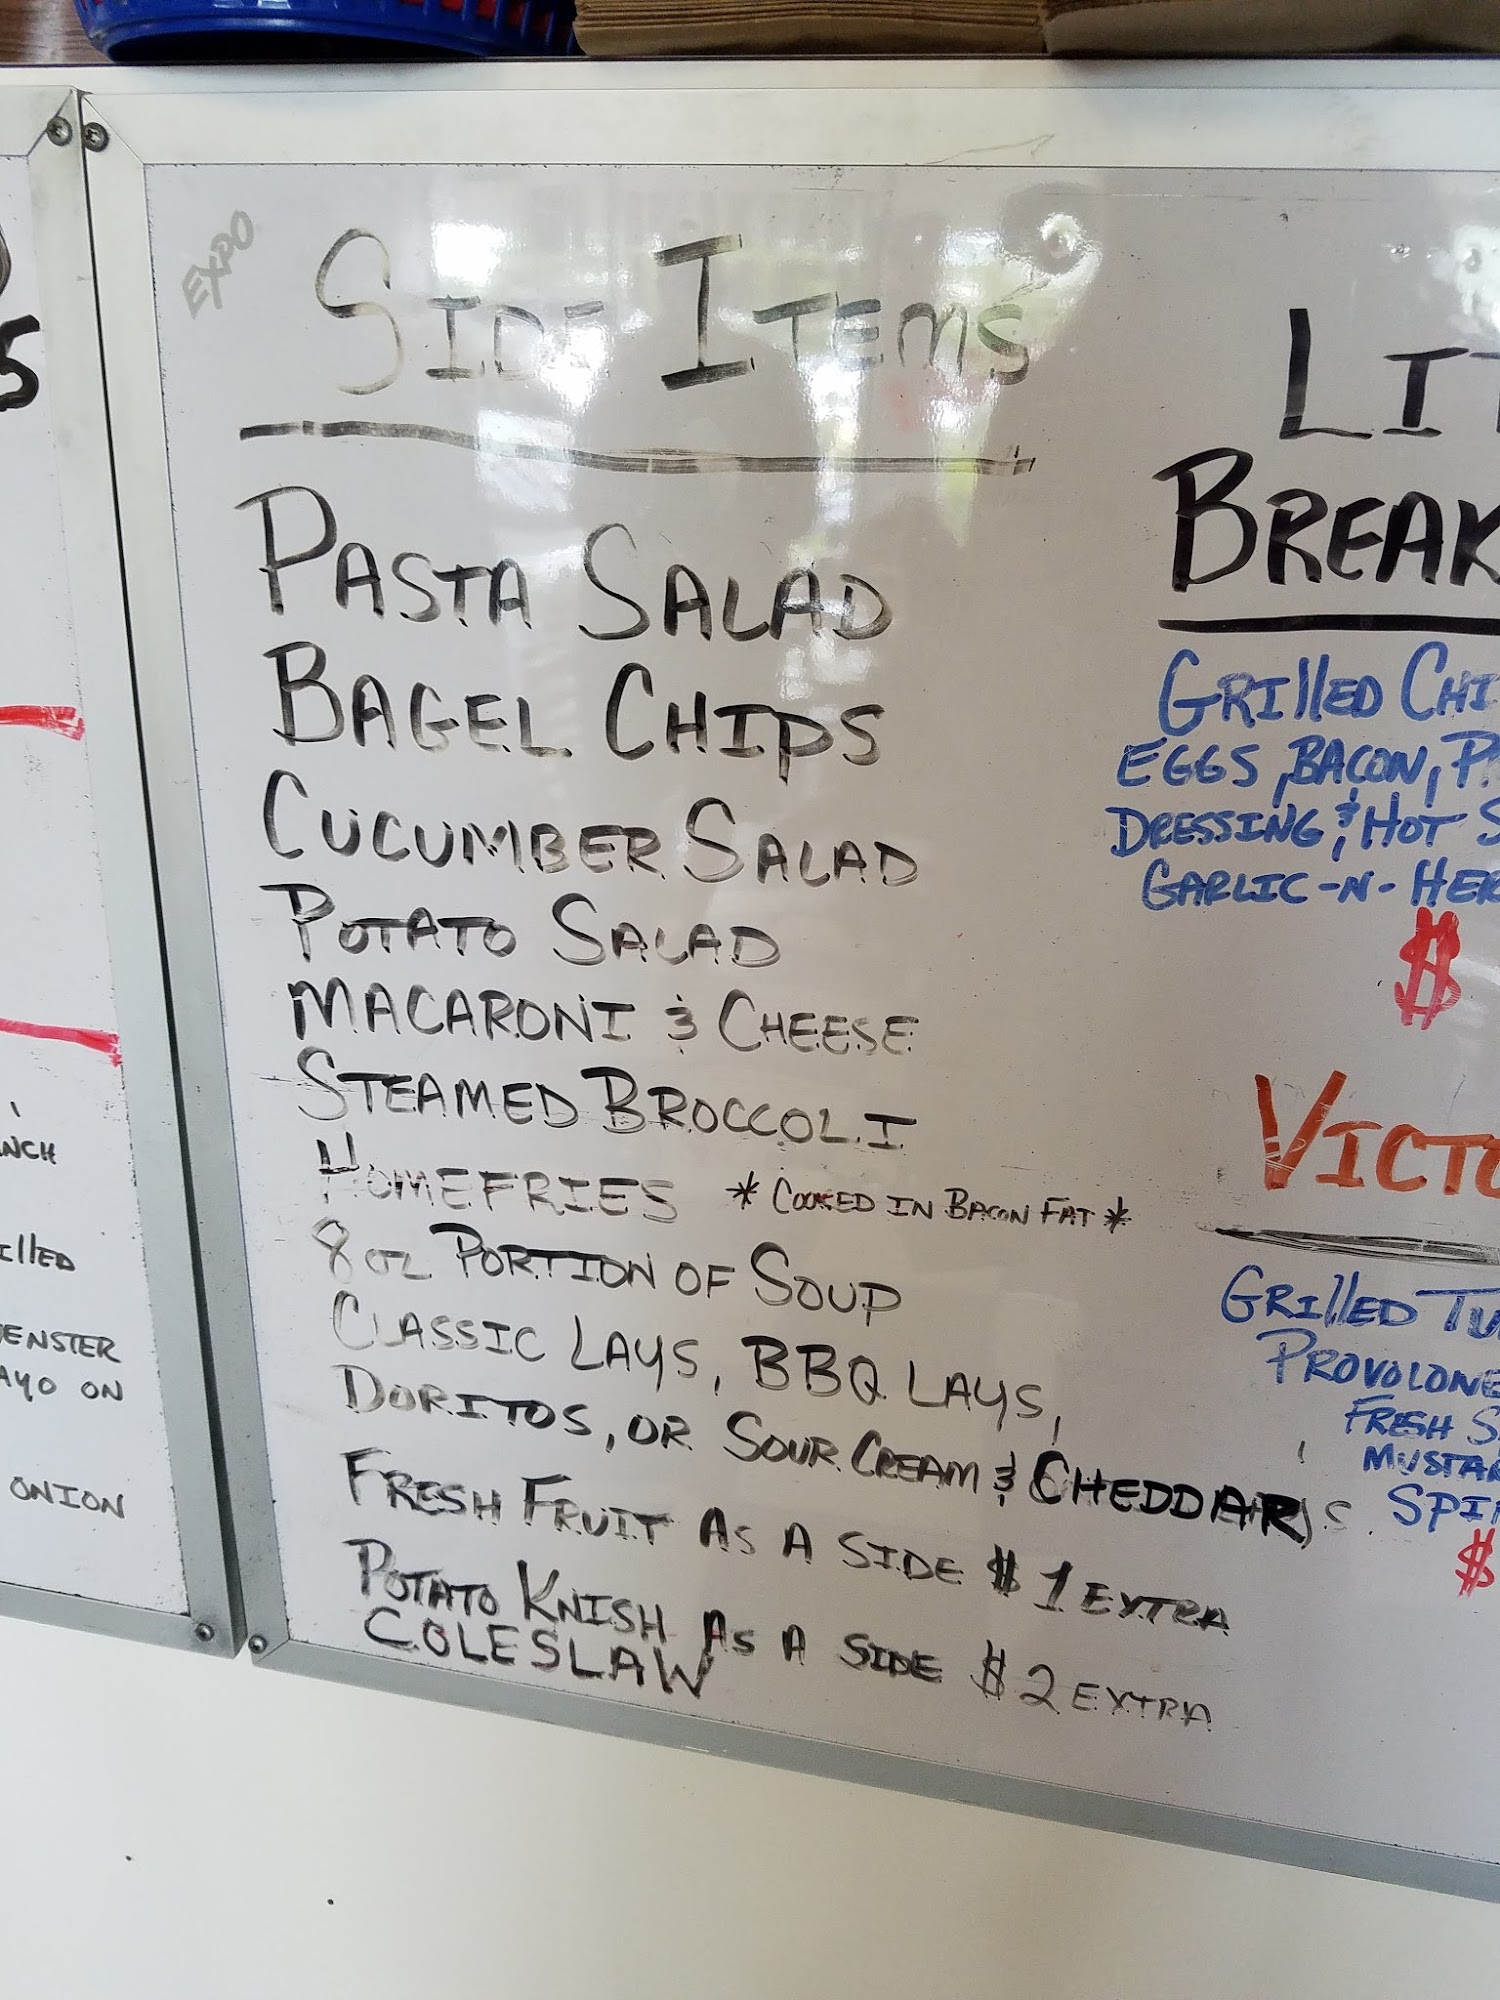 EXPO
SIDE ITEMS
PASTA SALAD
BAGEL CHIPS
CUCUMBER SALAD
POTATO SALAD
MACARONI & CHEESE
STEAMED BROCCOLI
HOMEFRIES * COOKED IN BACON FAT *
8 OZ PORTION OF SOUP
CLASSIC LAYS, BBQ LAYS,
DORITOS, OR SOUR CREAM & CHEDDAR
FRESH FRUIT AS A SIDE $1 EXTRA
POTATO KNISH AS A SIDE $2 EXTRA
COLESLAW
BREAK
GRILLED CHI
EGGS, BACON, P
DRESSING, & HOT S
GARLIC-N-HER
$
VICTO
GRILLED TU
PROVOLONE
FRESH S
MUSTAR
SPI
$
5
NCH
ILLED
ENSTER
AYO ON
ONION